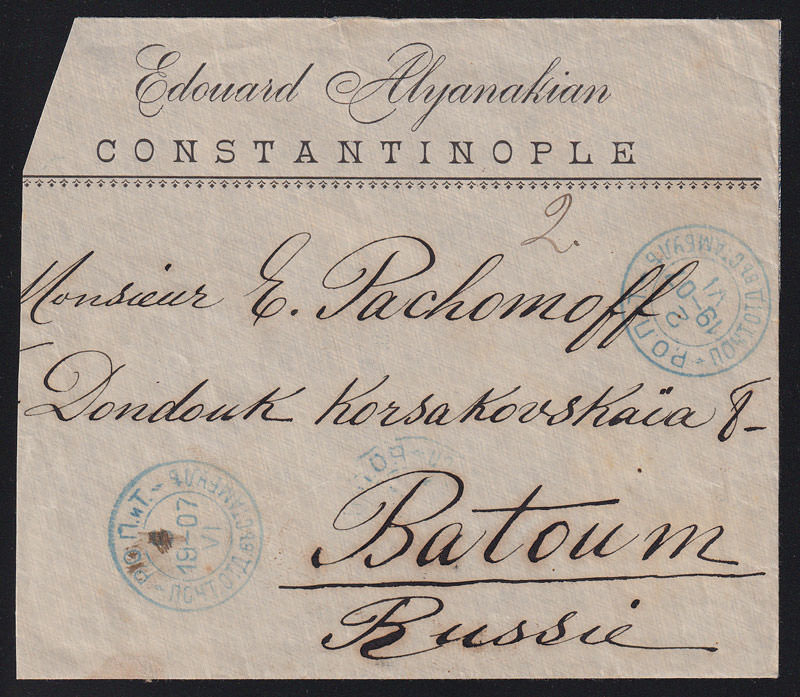 Edouard Alyanakian
CONSTANTINOPLE
2.
Monsieur E. Pachomoff
Dondouk Korsakovskaïa 8-
Batoum
Russie
Р.О.П.
ПОЧТ.ОТД.ВЪ СТАМБУЛѢ
2
19-0
VI
Р.О.П.иТ.
ПОЧТ.ОТД.ВЪ СТАМБУЛѢ
19-07
VI